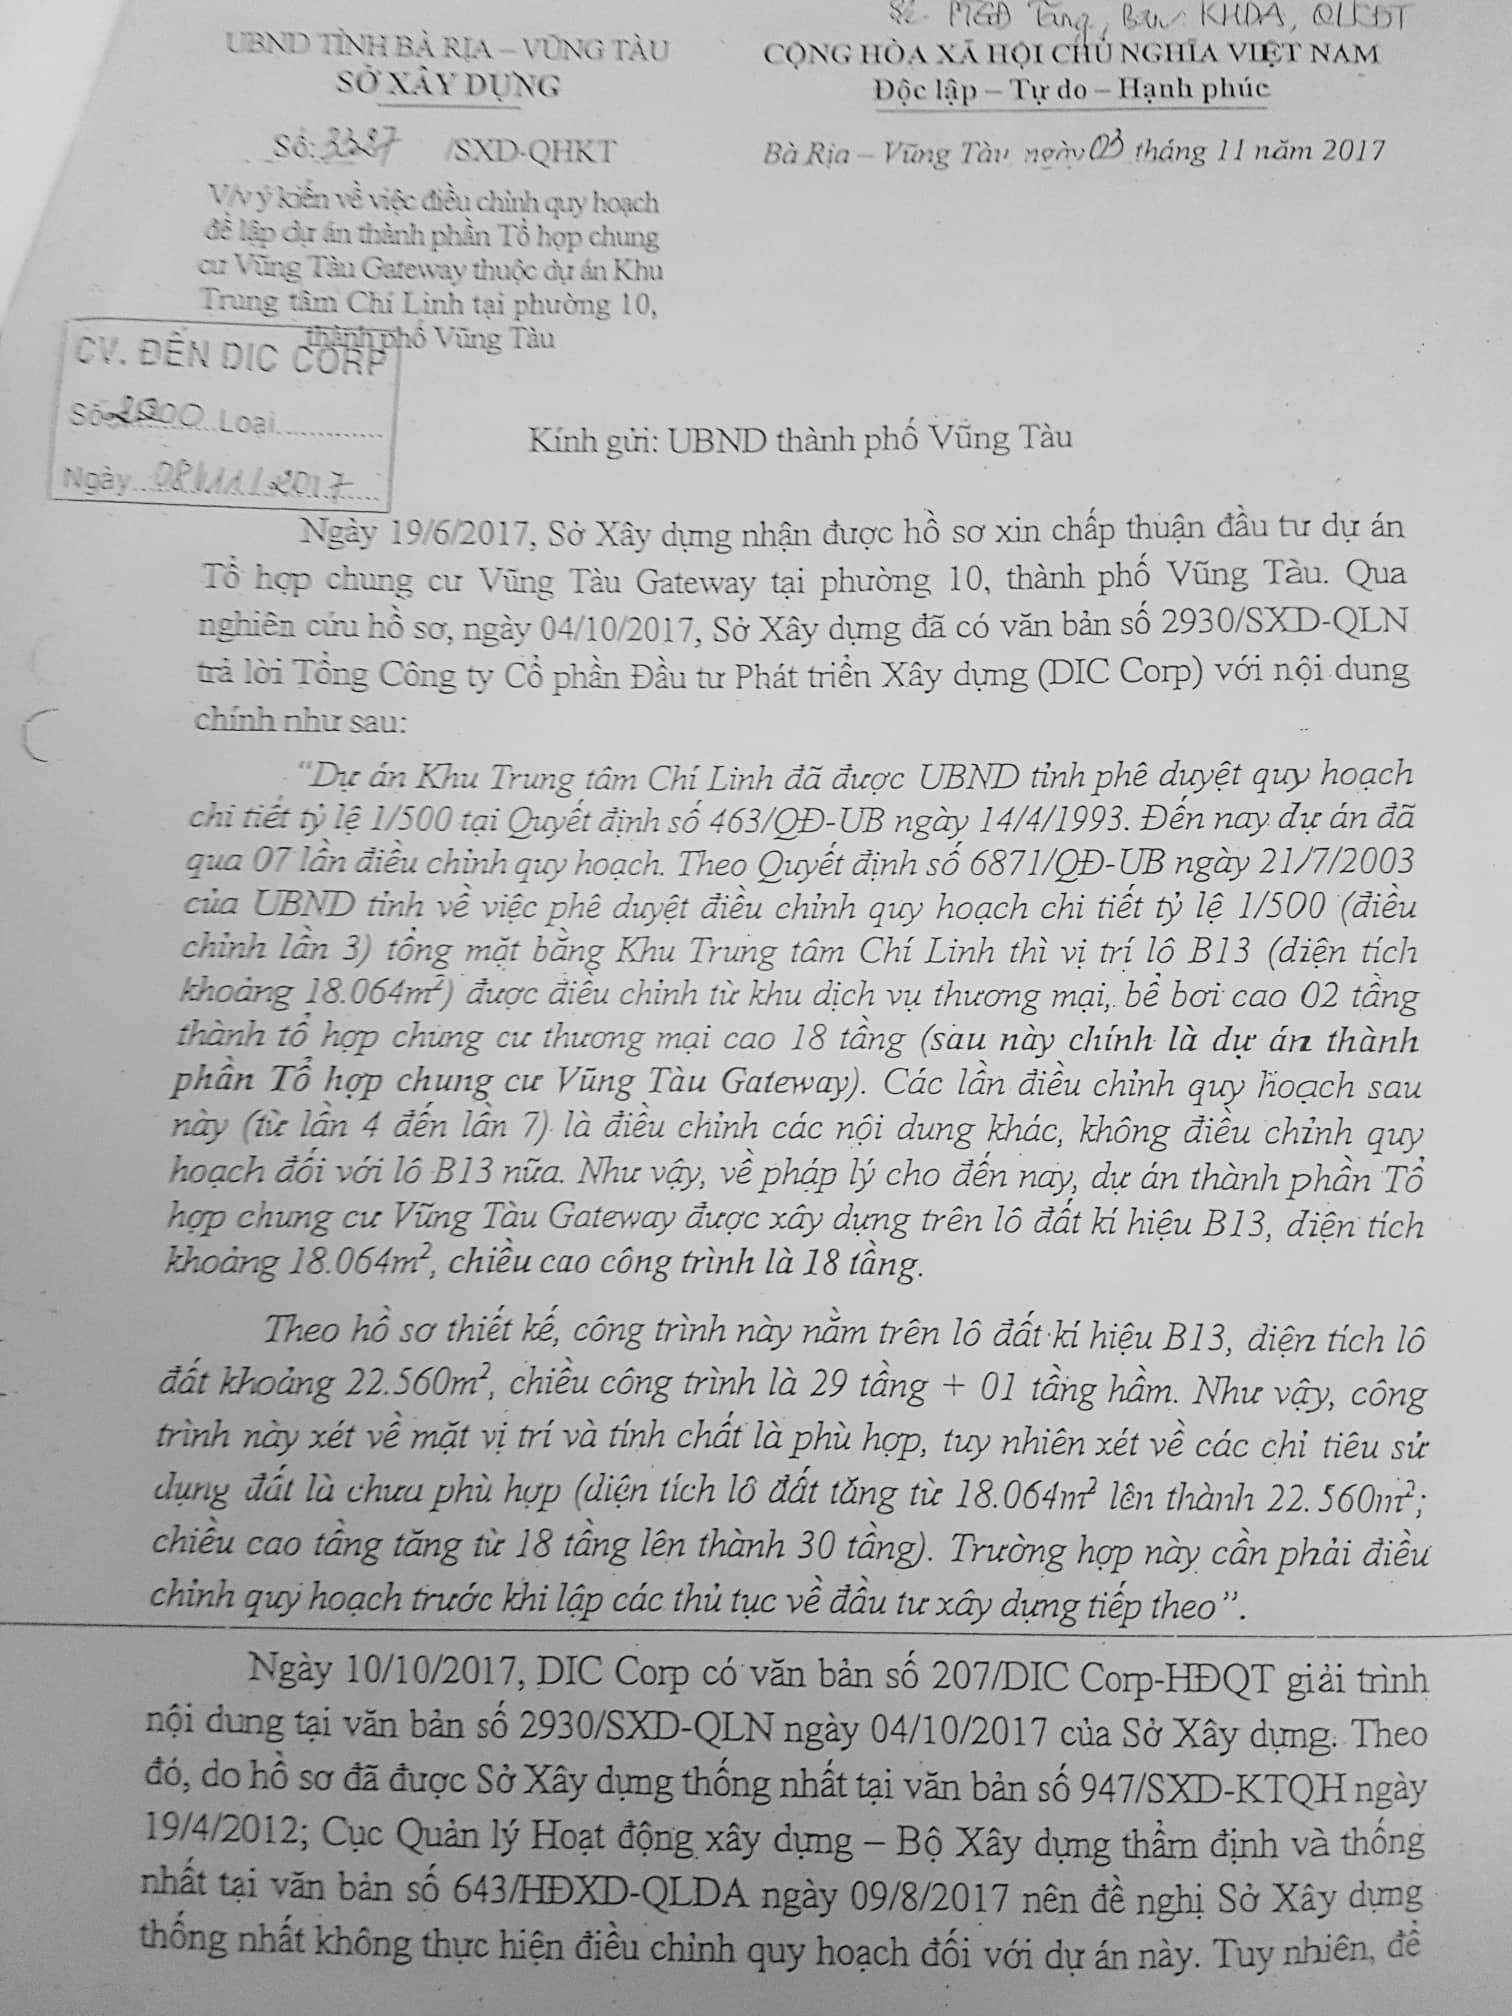 PTGĐ Tăng, Ban: KHDA, QLKDT
UBND TỈNH BÀ RỊA – VŨNG TÀU
SỞ XÂY DỰNG
CỘNG HÒA XÃ HỘI CHỦ NGHĨA VIỆT NAM
Độc lập – Tự do – Hạnh phúc
Số: 3327 /SXD-QHKT
Bà Rịa – Vũng Tàu, ngày 03 tháng 11 năm 2017
V/v ý kiến về việc điều chỉnh quy hoạch
để lập dự án thành phần Tổ hợp chung
cư Vũng Tàu Gateway thuộc dự án Khu
Trung tâm Chí Linh tại phường 10,
thành phố Vũng Tàu
CV. ĐẾN DIC CORP
Số Loại
Ngày 08/11/2017
Kính gửi: UBND thành phố Vũng Tàu
Ngày 19/6/2017, Sở Xây dựng nhận được hồ sơ xin chấp thuận đầu tư dự án
Tổ hợp chung cư Vũng Tàu Gateway tại phường 10, thành phố Vũng Tàu. Qua
nghiên cứu hồ sơ, ngày 04/10/2017, Sở Xây dựng đã có văn bản số 2930/SXD-QLN
trả lời Tổng Công ty Cổ phần Đầu tư Phát triển Xây dựng (DIC Corp) với nội dung
chính như sau:
“Dự án Khu Trung tâm Chí Linh đã được UBND tỉnh phê duyệt quy hoạch
chi tiết tỷ lệ 1/500 tại Quyết định số 463/QĐ-UB ngày 14/4/1993. Đến nay dự án đã
qua 07 lần điều chỉnh quy hoạch. Theo Quyết định số 6871/QĐ-UB ngày 21/7/2003
của UBND tỉnh về việc phê duyệt điều chỉnh quy hoạch chi tiết tỷ lệ 1/500 (điều
chỉnh lần 3) tổng mặt bằng Khu Trung tâm Chí Linh thì vị trí lô B13 (diện tích
khoảng 18.064m²) được điều chỉnh từ khu dịch vụ thương mại, bể bơi cao 02 tầng
thành tổ hợp chung cư thương mại cao 18 tầng (sau này chính là dự án thành
phần Tổ hợp chung cư Vũng Tàu Gateway). Các lần điều chỉnh quy hoạch sau
này (từ lần 4 đến lần 7) là điều chỉnh các nội dung khác, không điều chỉnh quy
hoạch đối với lô B13 nữa. Như vậy, về pháp lý cho đến nay, dự án thành phần Tổ
hợp chung cư Vũng Tàu Gateway được xây dựng trên lô đất kí hiệu B13, diện tích
khoảng 18.064m², chiều cao công trình là 18 tầng.
Theo hồ sơ thiết kế, công trình này nằm trên lô đất kí hiệu B13, diện tích lô
đất khoảng 22.560m², chiều công trình là 29 tầng + 01 tầng hầm. Như vậy, công
trình này xét về mặt vị trí và tính chất là phù hợp, tuy nhiên xét về các chỉ tiêu sử
dụng đất là chưa phù hợp (diện tích lô đất tăng từ 18.064m² lên thành 22.560m²;
chiều cao tầng tăng từ 18 tầng lên thành 30 tầng). Trường hợp này cần phải điều
chỉnh quy hoạch trước khi lập các thủ tục về đầu tư xây dựng tiếp theo”.
Ngày 10/10/2017, DIC Corp có văn bản số 207/DIC Corp-HĐQT giải trình
nội dung tại văn bản số 2930/SXD-QLN ngày 04/10/2017 của Sở Xây dựng. Theo
đó, do hồ sơ đã được Sở Xây dựng thống nhất tại văn bản số 947/SXD-KTQH ngày
19/4/2012; Cục Quản lý Hoạt động xây dựng – Bộ Xây dựng thẩm định và thống
nhất tại văn bản số 643/HĐXD-QLDA ngày 09/8/2017 nên đề nghị Sở Xây dựng
thống nhất không thực hiện điều chỉnh quy hoạch đối với dự án này. Tuy nhiên, để